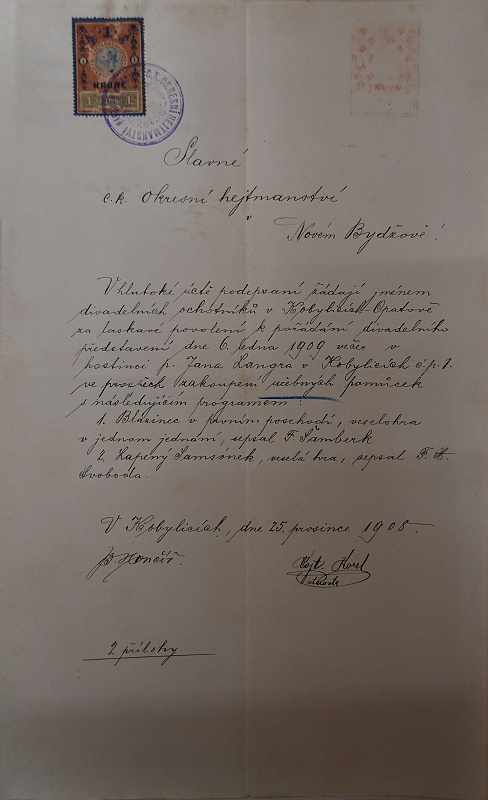 1
1 1
KRONE
C. K. OKRESNÍ HEJTMANSTVÍ
Slavné
c. k. okresní hejtmanství
v
Novém Bydžově!
V hluboké úctě podepsaní žádají jménem
divadelních ochotníků v Kobylicích-Opatově
za laskavé povolení k pořádání divadelního
představení dne 6. ledna 1909 večer v
hostinci p. Jana Langra v Kobylicích č. p. 1.
ve prospěch zakoupení učebných pomůcek
s následujícím programem:
1. Blázinec v prvním poschodí, veselohra
v jednom jednání, sepsal F. Šamberk
2. Lapený Samsónek, veselá hra, sepsal F. X.
Svoboda.
V Kobylicích, dne 25. prosince 1908.
Vojt. Horel
starosta
2 přílohy